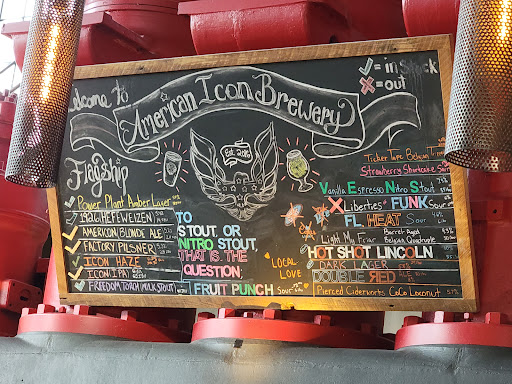 ✓= in stock
✗= out
Welcome to
American Icon Brewery
Est. 20
Flagship
✓ Power Plant Amber Lager
✓ 1926 HEFEWEIZEN
✓ AMERICAN BLONDE ALE
✓ FACTORY PILSNER
✓ ICON HAZE
✓ ICON IPA
✓ FREEDOM TORCH (MILK STOUT)
TO
STOUT, OR
NITRO STOUT,
THAT IS THE
QUESTION;
FRUIT PUNCH Sour
LOCAL
LOVE
Ticker Tape
Strawberry Shortcake Sour
Vanilla Espresso Nitro Stout
✗ Liberties FUNK Sour
FL HEAT Sour
Light My Friar Barrel Aged
Belgian Quadruple
HOT SHOT LINCOLN
DARK LAGER
DOUBLE RED
Pierced Ciderworks CoCo Loconut